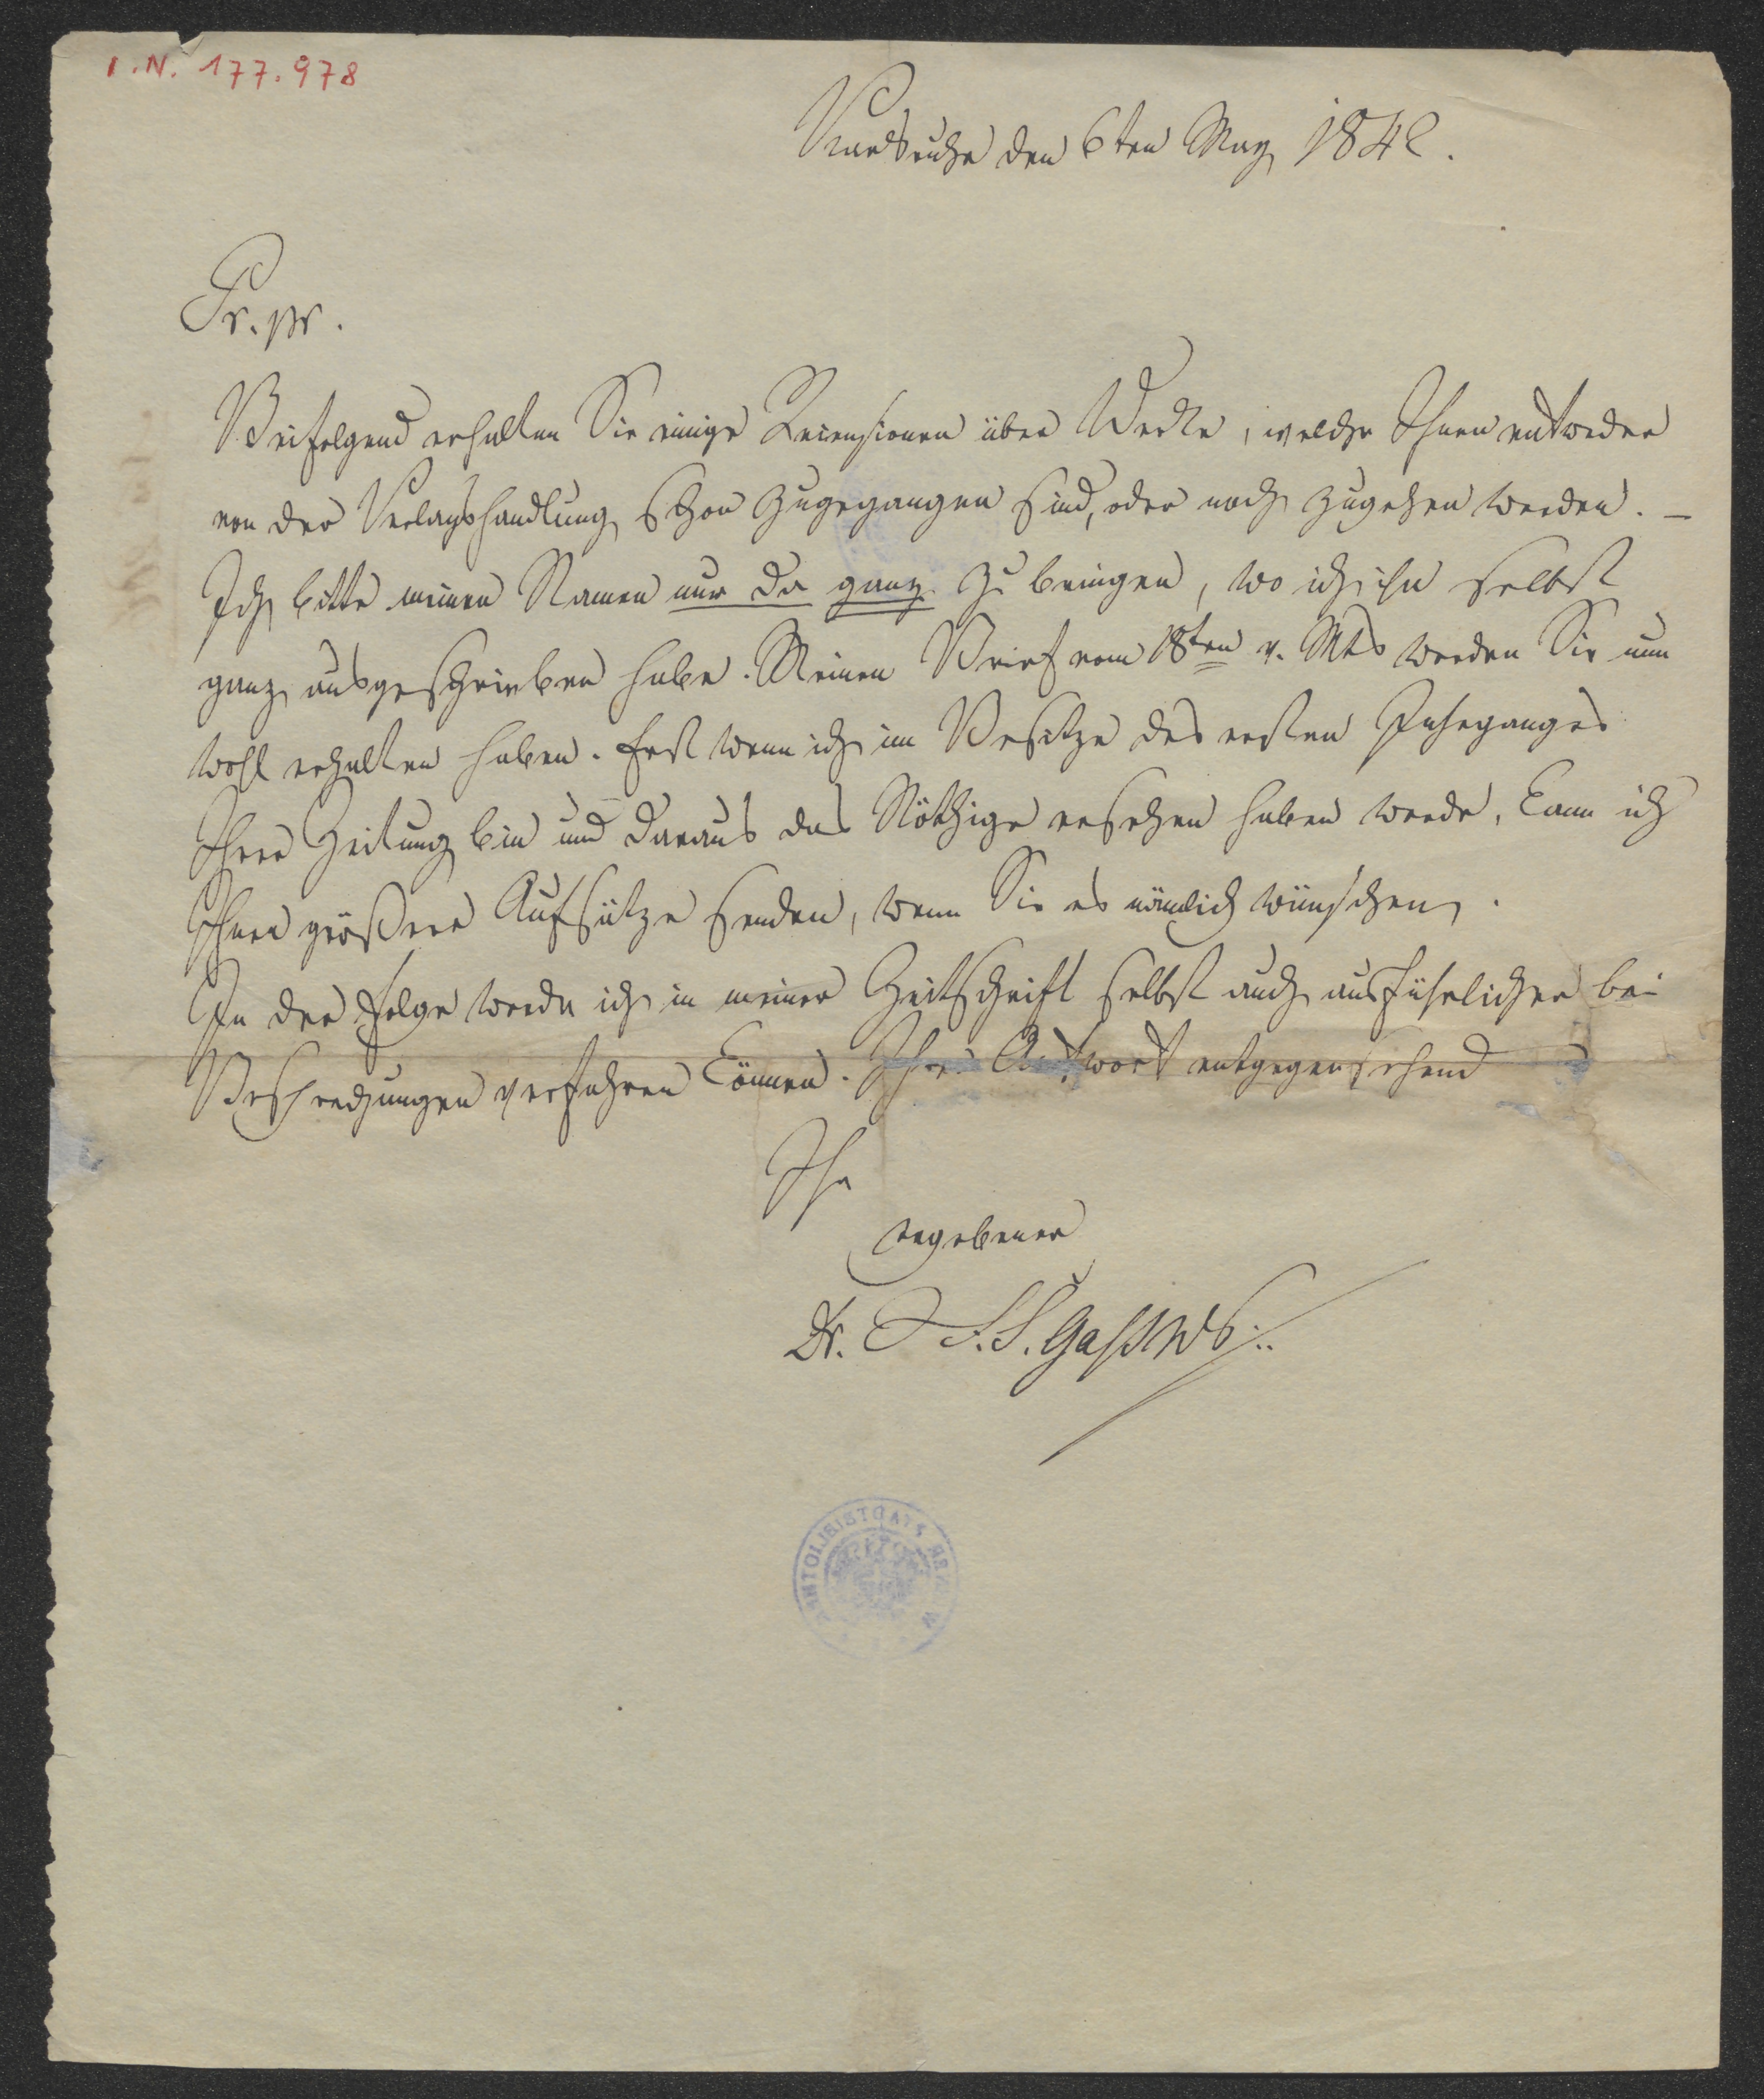 I.N. 177.978
Karlsruhe den 6ten May 1842.
Pr. pr.
Beifolgend erhalten Sie einige Recensionen über Werke, welche Ihnen entweder
von der Verlagshandlung schon zugegangen sind, oder noch zugehen werden. –
Ich bitte meinen Namen nur da ganz zu bringen, wo ich ihn selbst
ganz ausgeschrieben habe. Meinen Brief vom 18ten v. Mts werden Sie nun
wohl erhalten haben. Erst wenn ich im Besitze des ersten Jahrganges
Ihrer Zeitung bin und daraus das Nöthige ersehen haben werde, kann ich
Ihnen größere Aufsätze senden, wenn Sie es nämlich wünschen.
In der Folge werde ich in meiner Zeitschrift selbst auch ausführlicher bei
Besprechungen verfahren können. Ihrer Antwort entgegensehend
Ihr
ergebener
Dr. F. S. Gassner